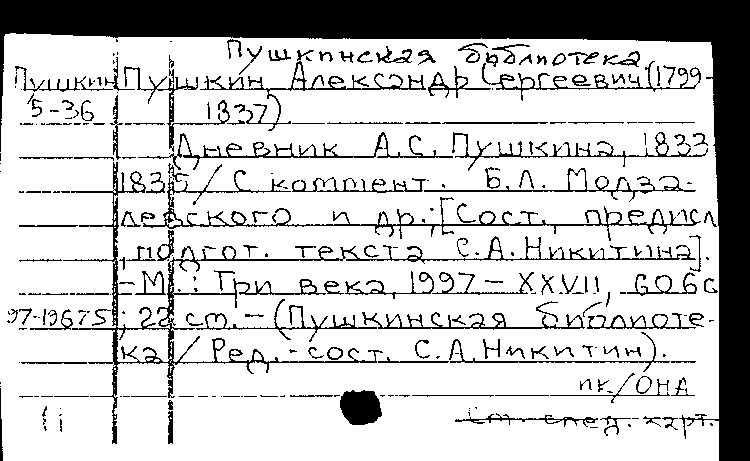 Пушкинская библиотека
Пушкин Пушкин, Александр Сергеевич (1799-
5-36 1837).
Дневник А.С. Пушкина, 1833-
1835 / С коммент. Б.Л. Модза-
левского и др.; [Сост., предисл
, подгот. текста С.А. Никитина].
- М.: Три века, 1997 - XXVII, 606с
97-19675 ; 22 см. - (Пушкинская библиоте-
ка / Ред.-сост. С.А. Никитин).
пк/ОНА
См. след. карт.